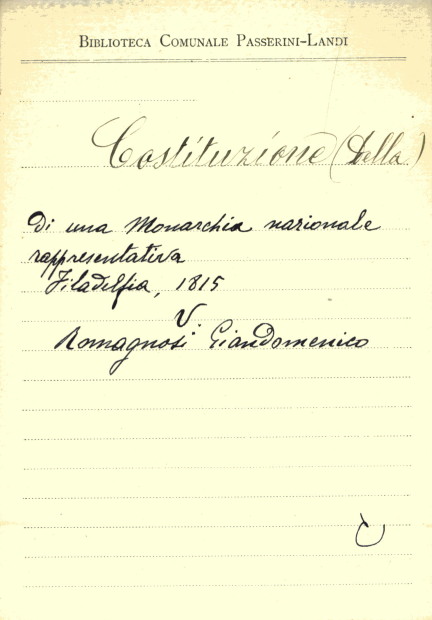 BIBLIOTECA COMUNALE PASSERINI-LANDI
Costituzione (Dalla)
di una Monarchia nazionale
rappresentativa
Filadelfia, 1815
V.
Romagnosi Giandomenico